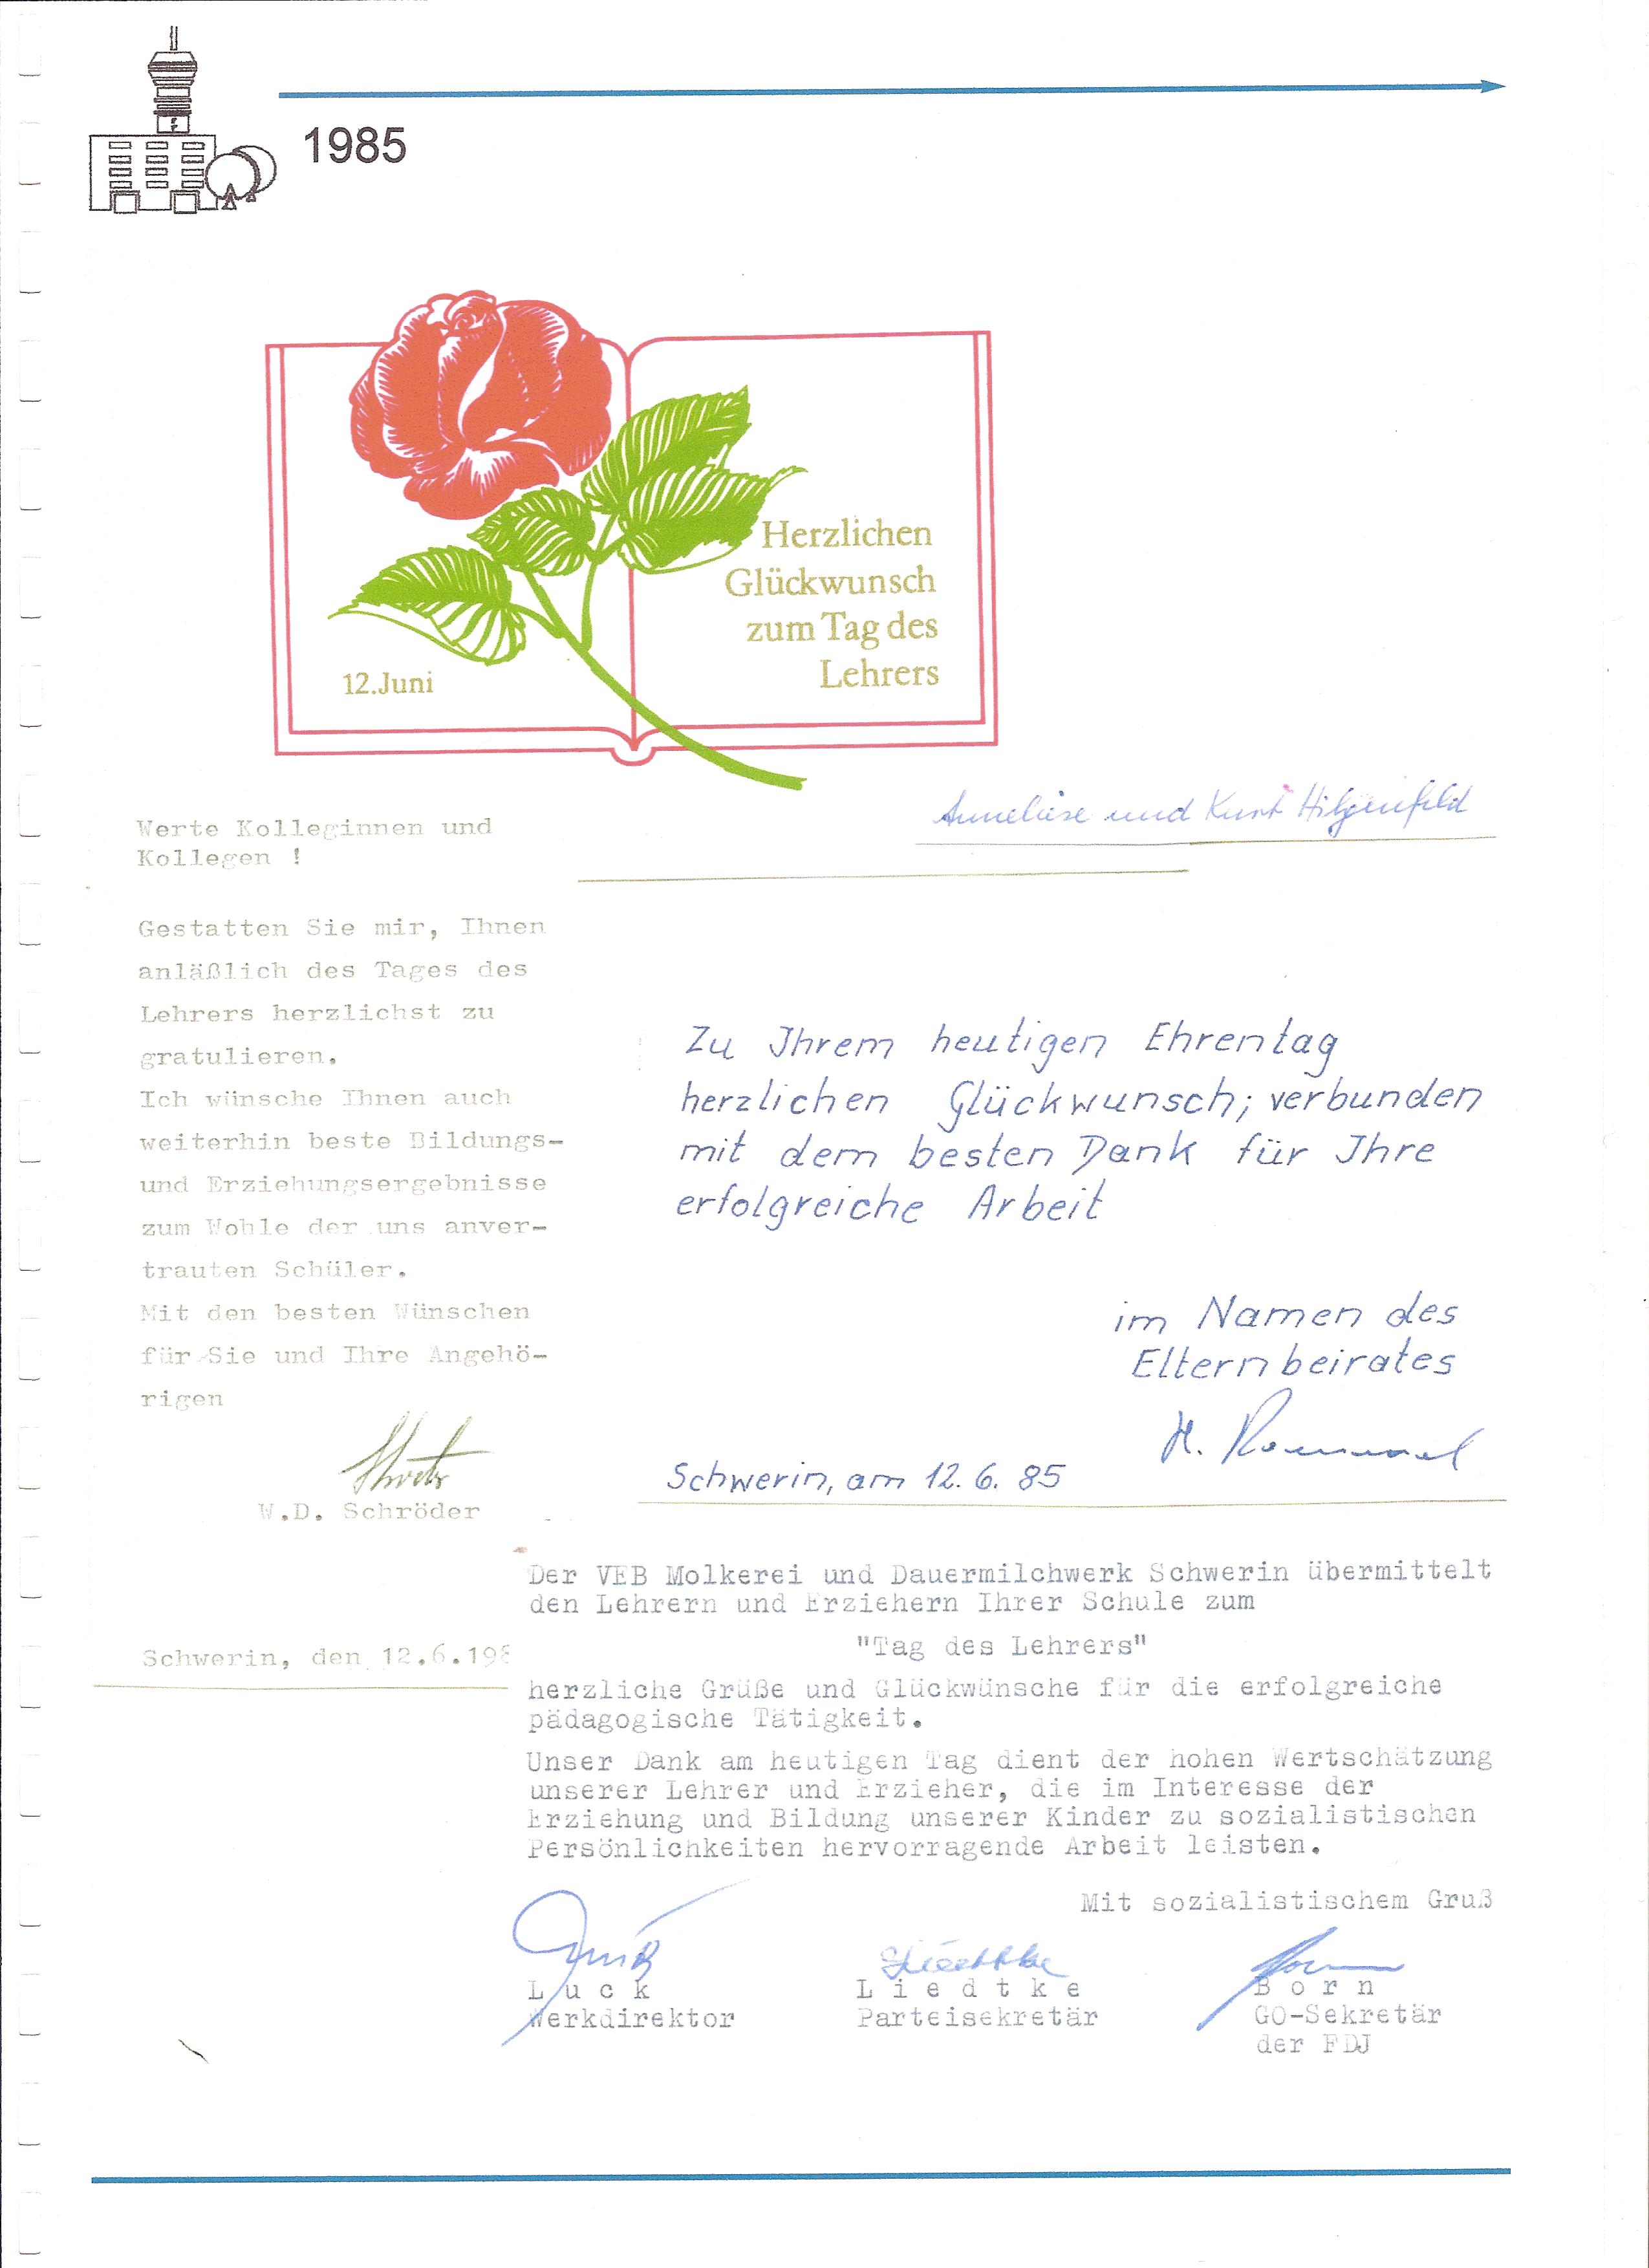 1985
12.Juni
Herzlichen
Glückwunsch
zum Tag des
Lehrers
Anneliese und Kurt Hilgenfeld
Werte Kolleginnen und
Kollegen !
Gestatten Sie mir, Ihnen
anläßlich des Tages des
Lehrers herzlichst zu
gratulieren.
Ich wünsche Ihnen auch
weiterhin beste Bildungs-
und Erziehungsergebnisse
zum Wohle der uns anver-
trauten Schüler.
Mit den besten Wünschen
für Sie und Ihre Angehö-
rigen
W.D. Schröder
Schwerin, den 12.6.198
Zu Ihrem heutigen Ehrentag
herzlichen Glückwunsch; verbunden
mit dem besten Dank für Ihre
erfolgreiche Arbeit
im Namen des
Elternbeirates
H.
Schwerin, am 12. 6. 85
Der VEB Molkerei und Dauermilchwerk Schwerin übermittelt
den Lehrern und Erziehern Ihrer Schule zum
"Tag des Lehrers"
herzliche Grüße und Glückwünsche für die erfolgreiche
pädagogische Tätigkeit.
Unser Dank am heutigen Tag dient der hohen Wertschätzung
unserer Lehrer und Erzieher, die im Interesse der
Erziehung und Bildung unserer Kinder zu sozialistischen
Persönlichkeiten hervorragende Arbeit leisten.
Mit sozialistischem Gruß
Luck Liedtke Born
Werkdirektor Parteisekretär GO-Sekretär
der FDJ